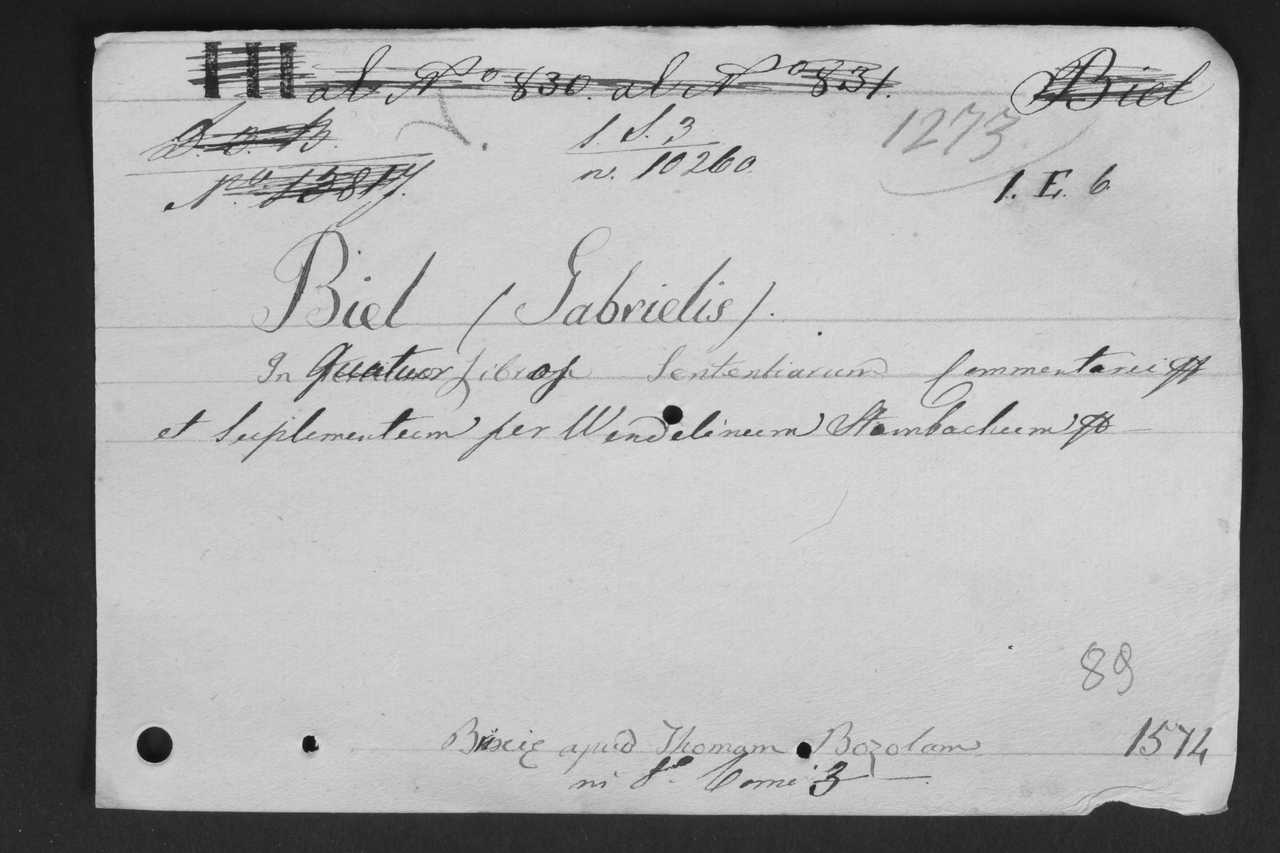 III ab Nº 830. ab Nº 831. Biel
D. o. B. 1. S. 3 1273
Nº 15817. n. 10260 1. E. 6
Biel (Gabrielis).
In Quatuor Libros Sententiarum Commentarii
et Suplementum per Wendelinum Stambachum
89
Brixię apud Thomam Bozolam 1574
in 8º Tomi 3